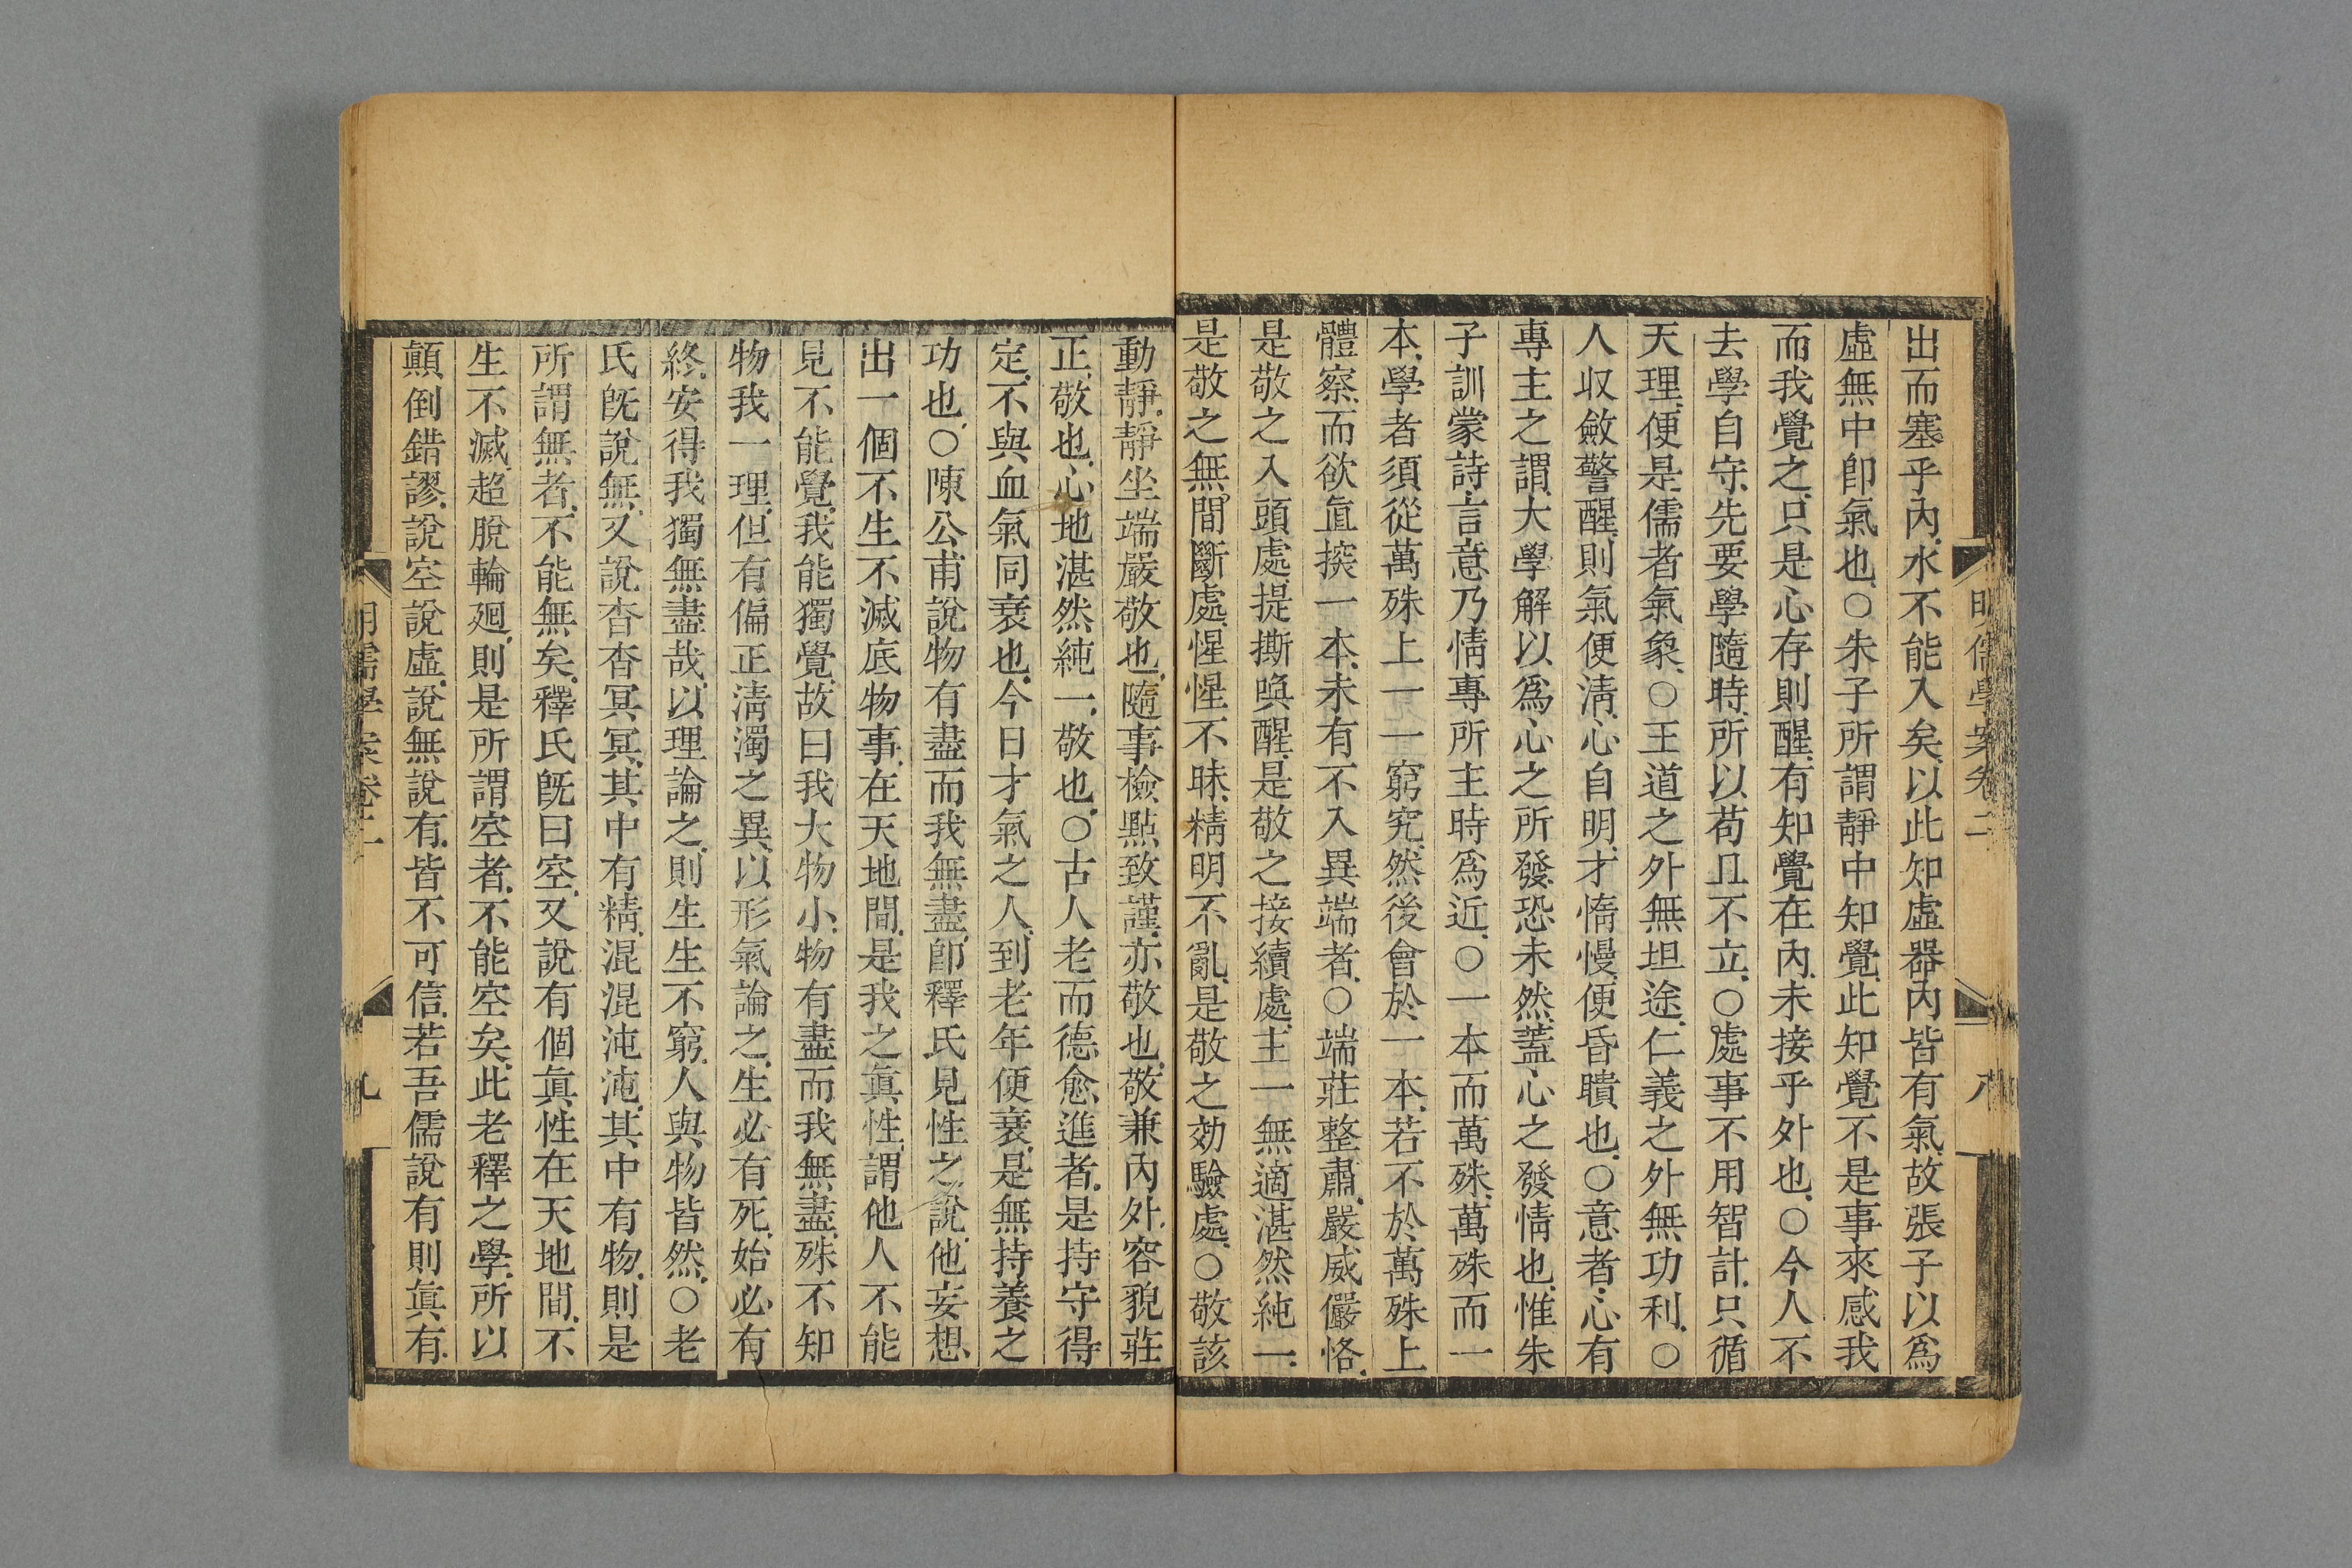 明儒學案卷二
八
出而塞乎內水不能入矣以此知虛器內皆有氣故張子以爲
虛無中卽氣也○朱子所謂靜中知覺此知覺不是事來感我
而我覺之只是心存則醒有知覺在內未接乎外也○今人不
去學自守先要學隨時所以苟且不立○處事不用智計只循
天理便是儒者氣象○王道之外無坦途仁義之外無功利○
人收斂警醒則氣便清心自明才惰慢便昏瞶也○意者心有
專主之謂大學解以爲心之所發恐未然蓋心之發情也惟朱
子訓蒙詩言意乃情專所主時爲近○一本而萬殊萬殊而一
本學者須從萬殊上一一窮究然後會於一本若不於萬殊上
體察而欲直探一本未有不入異端者○端莊整肅嚴威儼恪
是敬之入頭處提撕喚醒是敬之接續處主一無適湛然純一
是敬之無間斷處惺惺不昧精明不亂是敬之効驗處○敬該
動靜靜坐端嚴敬也隨事檢點致謹亦敬也敬兼內外容貌莊
正敬也心地湛然純一敬也○古人老而德愈進者是持守得
定不與血氣同衰也今日才氣之人到老年便衰是無持養之
功也○陳公甫說物有盡而我無盡卽釋氏見性之說他妄想
出一個不生不滅底物事在天地間是我之眞性謂他人不能
見不能覺我能獨覺故曰我大物小物有盡而我無盡殊不知
物我一理但有偏正清濁之異以形氣論之生必有死始必有
終安得我獨無盡哉以理論之則生生不窮人與物皆然○老
氏旣說無又說杳杳冥冥其中有精混混沌沌其中有物則是
所謂無者不能無矣釋氏旣曰空又說有個眞性在天地間不
生不滅超脫輪廻則是所謂空者不能空矣此老釋之學所以
顚倒錯謬說空說虛說無說有皆不可信若吾儒說有則眞有
明儒學案卷二
九